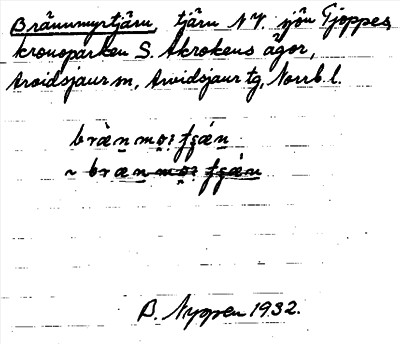 Brännmyrtjärn, tjärn NV. sjön Tjoppes,
kronoparken S. Akrokens ägor,
Arvidsjaur sn, Arvidsjaur tg, Norrb. l.
brän
~ brän
B. Nyppen 1932.